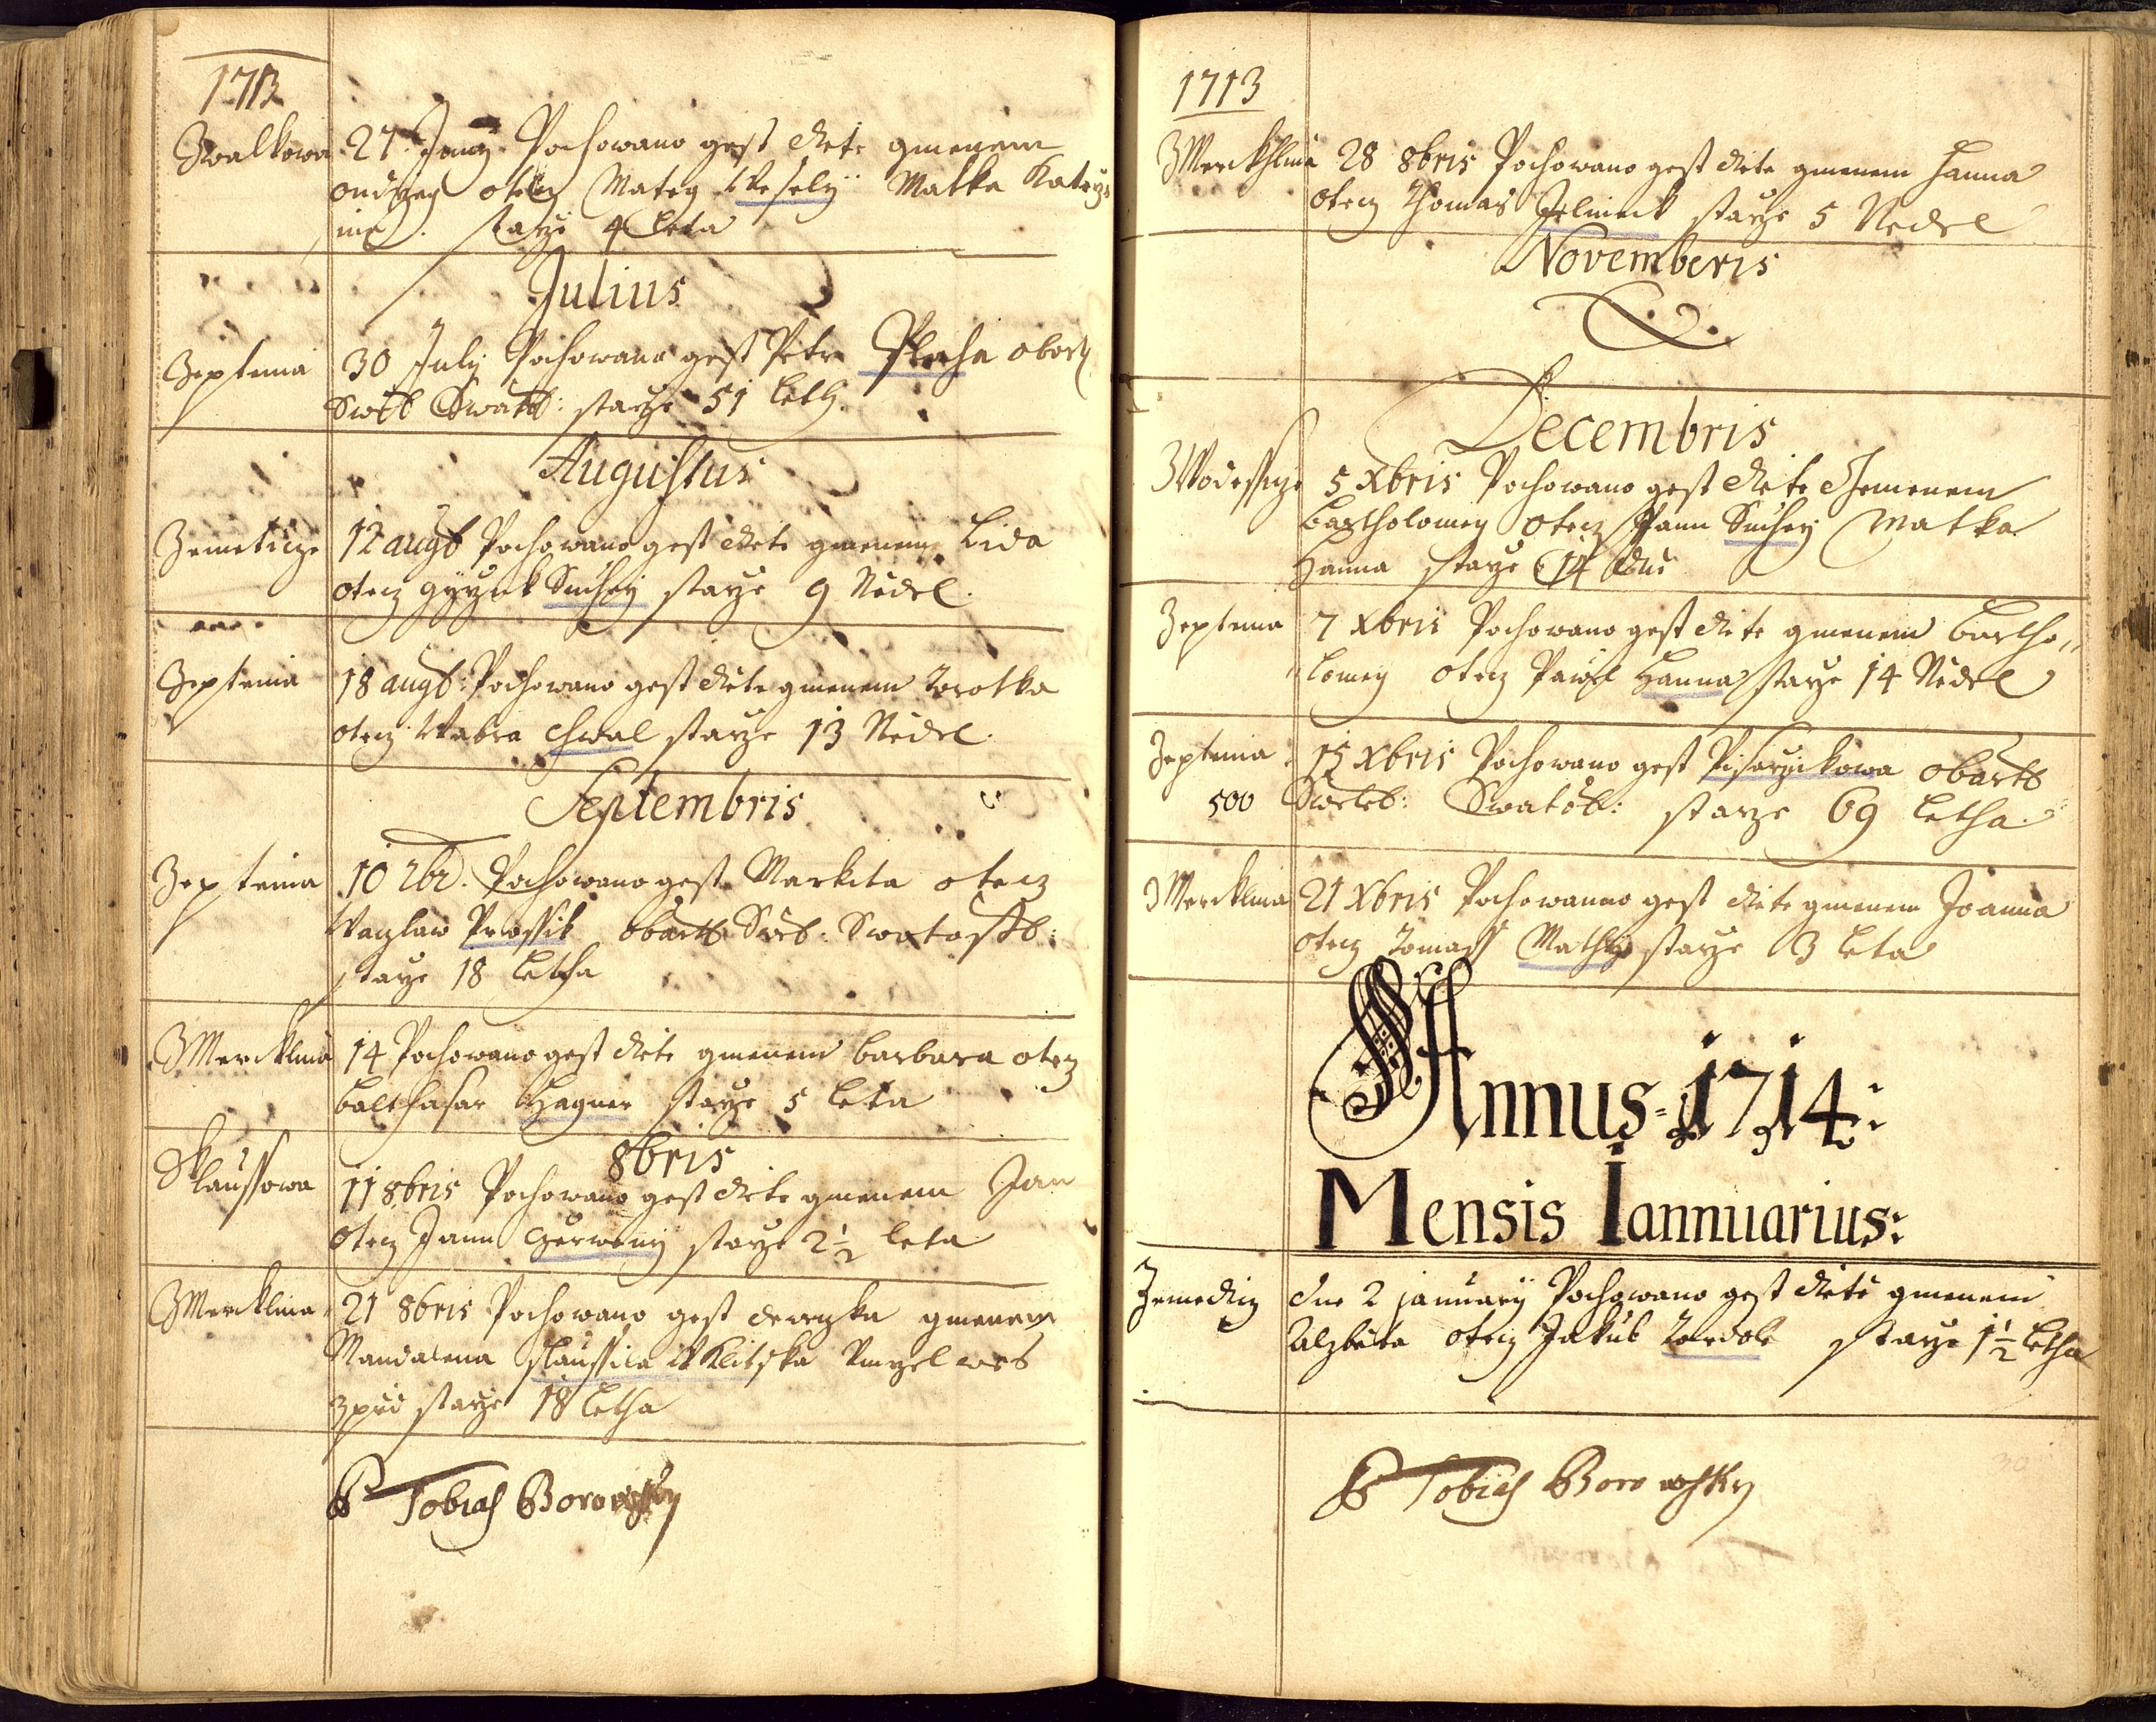 1713
Zwalkowa 27 Juny Pochowano gest dite gmenem
ondrzeg otecz Mateg Wesely Matka Katerzi
na starze 4 leta
Julius
Zeptenia 30 July Pochowano gest Petr Placha obartz
Swět Swatt: starze 51 leth
Augustus
Zemeticze 12 augt Pochowano gest dite gmenem Lida
otecz gyrzik Suchey starze 9 Nedel
Zeptenia 18 augt: Pochowano gest dite gmenem Dorotka
otecz Wabra chwal starze 13 Nedel
Septembris
Zeptenia 10 7br. Pochowano gest Markita otecz
Waczlaw Prossik obartt Swět: Swatostt:
starze 18 Letha
Z Mercklina 14 Pochowano gest dite gmenem barbara otecz
balthasar Hagner starze 5 leta
8bris
Slaussowa 11 8bris Pochowano gest dite gmenem Jan
otecz Jann czerweny starze 2 1/2 leta
Z Mercklina 21 8bris Pochowano gest deweczka gmenem
Mandalena
starze 18 Letha
P Tobias Borowsky
1713
Z Merckhlina 28 8bris Pochowano gest dite gmenem Hanna
otecz Thomas Jelinek starze 5 Nedel
Novemberis
Decembris
Z Wodessicze 5 Xbris Pochowano gest dite Gmenem
bartholomey otecz Jann Suchey Matka
Hanna starze 14 dni
Zeptenia 7 Xbris Pochowano gest dite gmenem bartho„
„lomey otecz Pawel Hanna starze 14 Nedel
Zeptenia 15 Xbris Pochowano gest Pisarzickowa obartt
500 Swětt: Swatostt: starze 69 Letha
Z Mercklina 21 Xbris Pochowanno gest dite gmenem Joanna
otecz Tomass Mathy starze 3 leta
Annus 1714:
Mensis Iannuarius:
Zemeticz dne 2 january Pochowano gest dite gmenem
Alzbieta otecz Jakub Tordole starze 1 1/2 Letha
P Tobias Borowsky